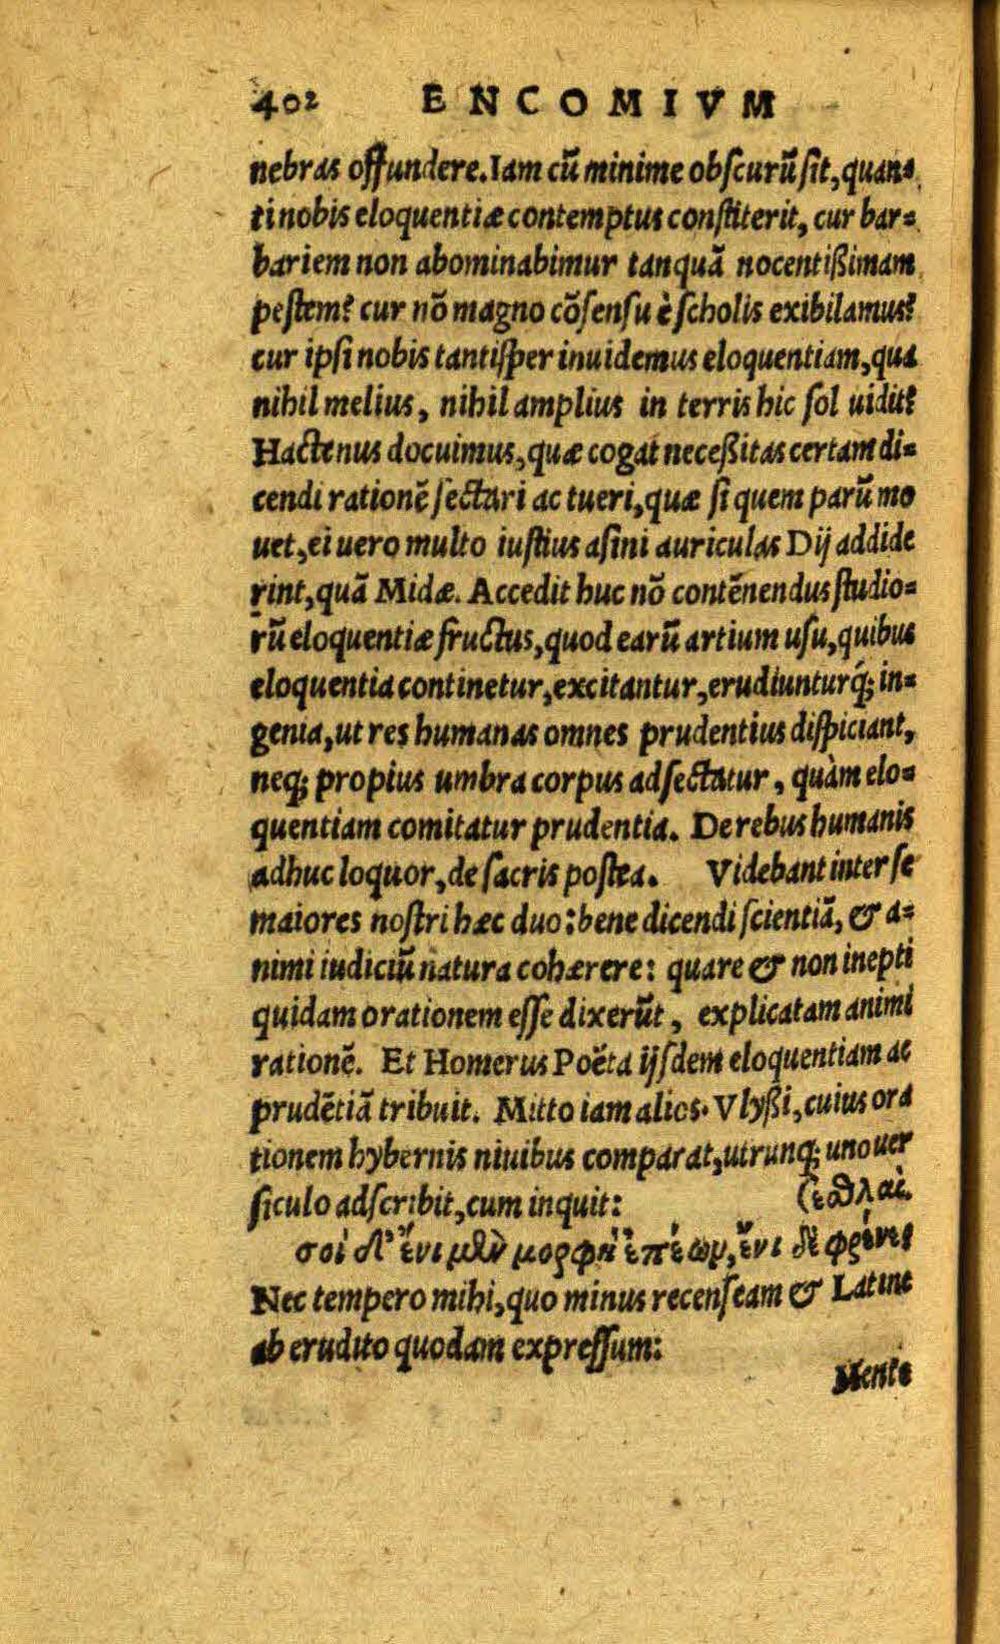 402 ENCOMIVM
nebras offundere. Iam cũ minime obſcurũ ſit, quan⸗
ti nobis eloquentiæ contemptus conſtiterit, cur bar⸗
bariem non abominabimur tanquã nocentißimam
peſtem? cur nõ magno cõſenſu è ſcholis exibilamus?
cur ipſi nobis tantiſper inuidemus eloquentiam, qua
nihil melius, nihil amplius in terris hic ſol uidit?
Hactenus docuimus, quæ cogat neceßitas certam di⸗
cendi rationẽ ſectari ac tueri, quæ ſi quem parũ mo
uet, ei uero multo iuſtius aſini auriculas Dij addide
rint, quã Midæ. Accedit huc nõ contẽnendus ſtudio⸗
rũ eloquentiæ fructus, quod earũ artium uſu, quibus
eloquentia continetur, excitantur, erudiunturq́; in⸗
genia, ut res humanas omnes prudentius diſpiciant,
neq; propius umbra corpus adſectatur, quàm elo⸗
quentiam comitatur prudentia. De rebus humanis
adhuc loquor, de ſacris poſtea. Videbant inter ſe
maiores noſtri hæc duo: bene dicendi ſcientiã, & a⸗
nimi iudiciũ natura cohærere: quare & non inepti
quidam orationem eſſe dixerũt, explicatam animi
rationẽ. Et Homerus Poëta ijſdem eloquentiam ac
prudẽtiã tribuit. Mitto iam alios. Vlyßi, cuius ora
tionem hybernis niuibus comparat, utrunq; uno uer
ſiculo adſcribit, cum inquit: (ἐσθλαὶ.
σοὶ δ' ἔνι μὲν μορφὴ ἐπέων, ἔνι δὲ φρένες
Nec tempero mihi, quo minus recenſeam & Latine
ab erudito quodam expreſſum:
Mente